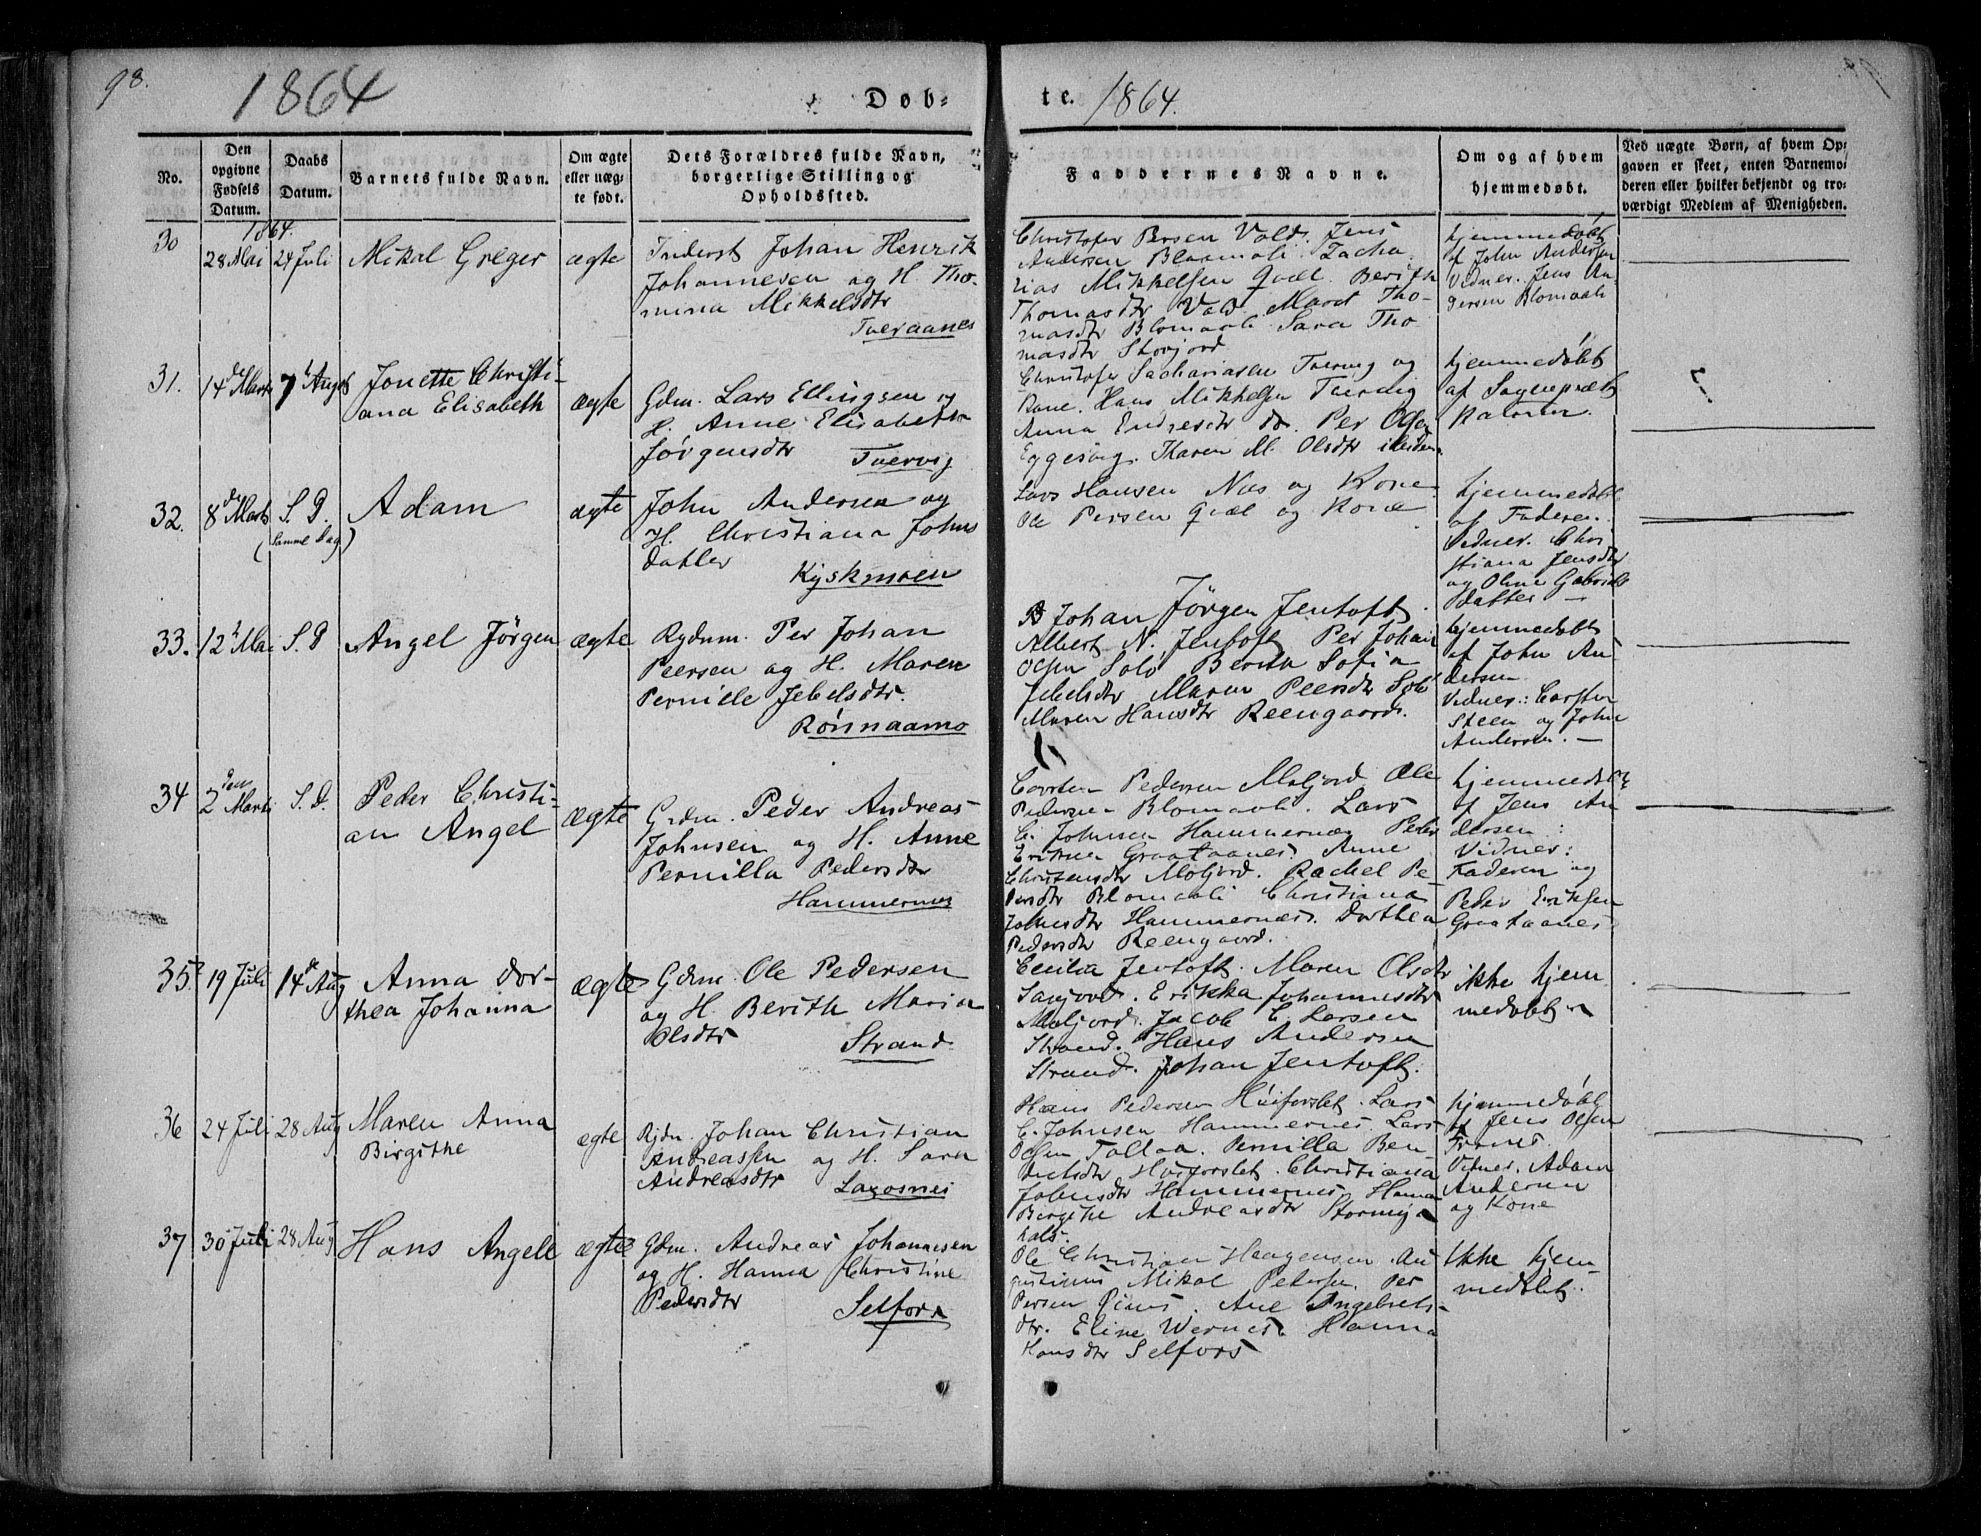 98.
1864
Døb-
te.
1864.
No.
Den opgivne Fødsels Datum.
Daabs Datum.
Barnets fulde Navn.
Om ægte eller uægte født.
Dets Forældres fulde Navn, borgerlige Stilling og Opholdssted.
Faddernes Navne.
Om og af hvem hjemmedøbt.
Ved uægte Børn, af hvem Opgaven er skeet, enten Barnemoderen eller hvilket bekjendt og troværdigt Medlem af Menigheden.
1864.
30
28 Mai
24 Juli
Mikal Greger
ægte
Inderst Johan Henrik
Johannesen og H. Tho-
mina Mikkelsdtr
Tveraanes
Christofer Persen Vold. Jens
Andersen Blaamoli Zacha
rias Mikkelsen Qvæl. Berith
Thomasdtr Vold Maret Tho-
masdtr Blomaali Sara Tho
masdtr Storjord
hjemmedøbt
af John Andersen
Vidner. Jens An
dersen Blomaali
31.
14de Marts
7 Augst
Jonette Christi-
ana Elisabeth
ægte
Gdm. Lars Ellingsen og
H. Anne Elisabeth
Jørgensdtr
Tvervig
Christofer Sachariasen Tvervig og
Kone. Hans Mikkelsen Tvervig
Anna Endresdtr do. Per Olsen
Eggesvig. Karen M. Olsdtr ibidem
hjemmedøbt
af Sognepræst
32.
8de Marts
S. D.
(samme Dag)
Adam
ægte
John Andersen og
H. Christiana Johns
datter
Kyskmoen
Lars Hansen Næs og Kone
Ole Persen Qvæl og Kone
hjemmedøbt
af Faderen.
Vidner. Chri
stiana Jensdtr
og Oline Gabriels
datter —
33.
12 Mai
S. D
Angel Jørgen
ægte
Rydnm. Per Johan
Peersen og H. Maren
Pernille Jebelsdtr.
Rønnaamo
Johan Jørgen Jentoft
Albert N. Jentoft Per Johan
Olsen Solv Berith Sofia
Jebelsdtr Maren Peersdtr
Maren Hansdtr Reengaard.
hjemmedøbt
af John An
dersen
Vidner: Carsten
Steen og John
Andersen. —
34
2den Marts
S. D.
Peder Christi-
an Angel
ægte
Grdm. Peder Andreas
Johnsen og H. Anne
Pernilla Pedersdtr
Hammernes
Carsten Pedersen Moljord Ole
Pedersen Blomaali. Lars
C. Johnsen Hammernæs Peder
Eriksen Graataanes. Anne
Christensdtr Moljord. Rachel Pe
dersdtr Blomaali Christiana
Johnsdtr Hammernæs. Dorthea
Pedersdtr Reengaard.
hjemmedøbt
af Jens An
dersen:
Vidner:
Faderen og
Peder Eriksen
Graataanes
35
19 Juli
14de Aug
Anna Dor-
thea Johanna
ægte
Gdm. Ole Pedersen
og H. Berith Maria
Olsdtr
Strand
Cecilia Jentoft. Maren Olsdtr
Sanjord. Erikka Johannesdtr
Moljord. Jacob C. Larsen
Strand. Hans Andersen
Strand. Johan Jentoft.
ikke hjem
medøbt
36
24 Juli
28 Aug
Maren Anna
Birgithe
ægte
Rjdn. Johan Christian
Andreassen og H. Sara
Andreasdtr
Laxosnes
Hans Pedersen Husforslet. Lars
C. Johnsen Hammernes. Lars
Olsen Tollaa. Pernilla Ben
dictsdtr Husforslet. Christiana
Johnsdtr Hammernes. Hanna
Birgithe Andreasdtr
hjemmedøbt
af Jens Olsen
Vidner. Adam
Andersen
og Kone
37
30 Juli
28 Aug
Hans Angell
ægte
Gdm. Andreas Johannesen
og H. Hanna Christine
Pedersdtr
Selfors
Ole Christian Haagensen. Au
gustinus Mikal Pedersen. Per
Persen. Ane Ingebrets-
dtr. Eline Wernes. Hanna
Hansdtr Selfors
Ikke hjem-
medøbt.